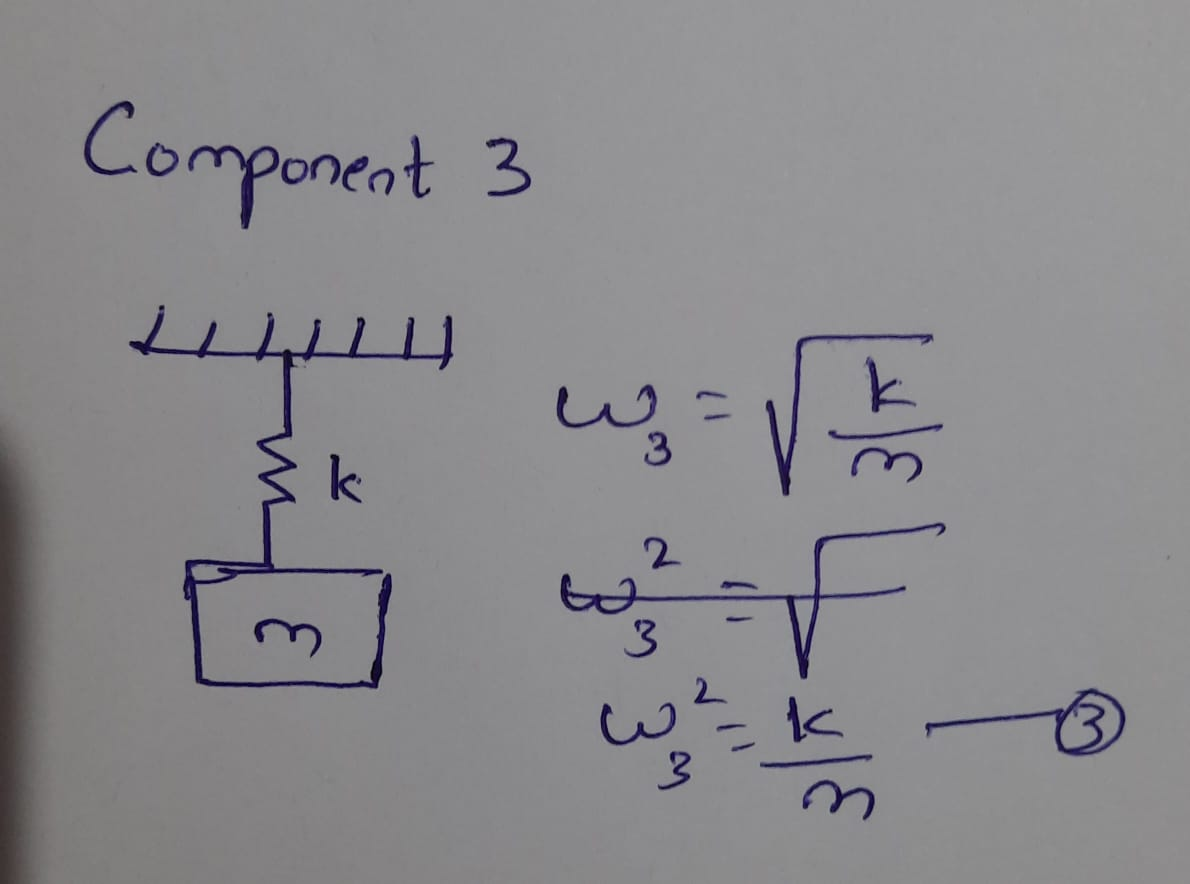 Component 3
k
m
ω₃ = √(k/m)
ω₃² = √
ω₃² = k/m — ③